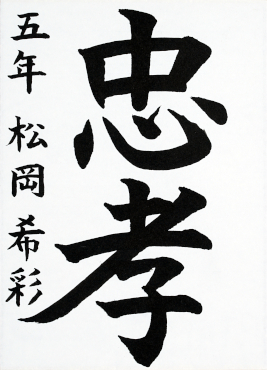 忠孝
五年 松岡希彩